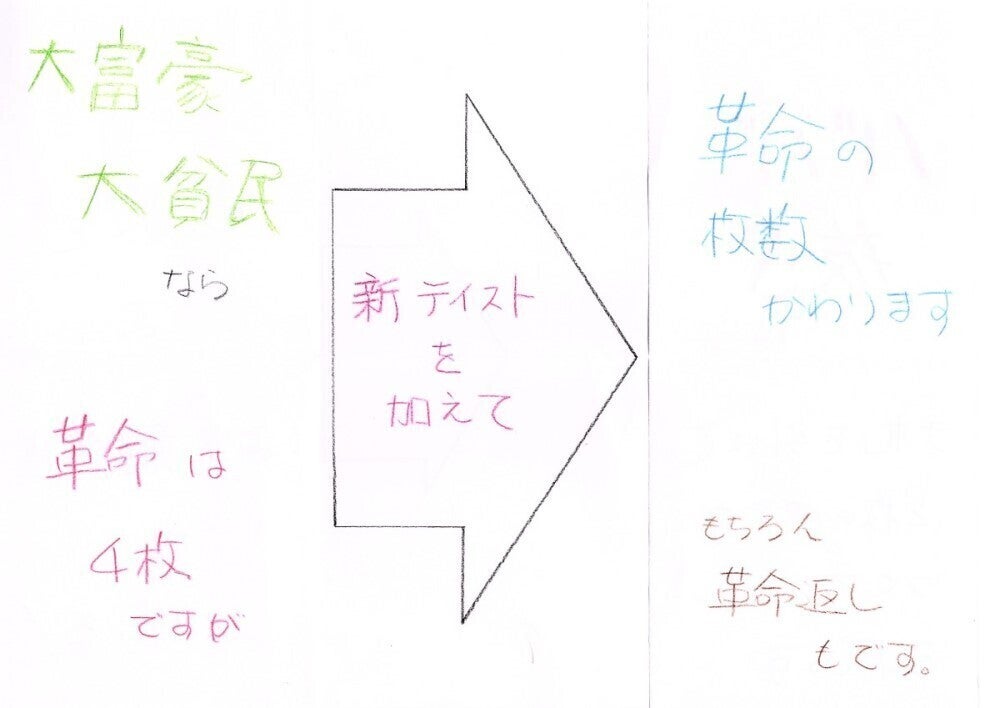 大富豪
大貧民
なら
革命は
4枚
ですが
新テイスト
を
加えて
革命の
枚数
かわります
もちろん
革命返し
もです。